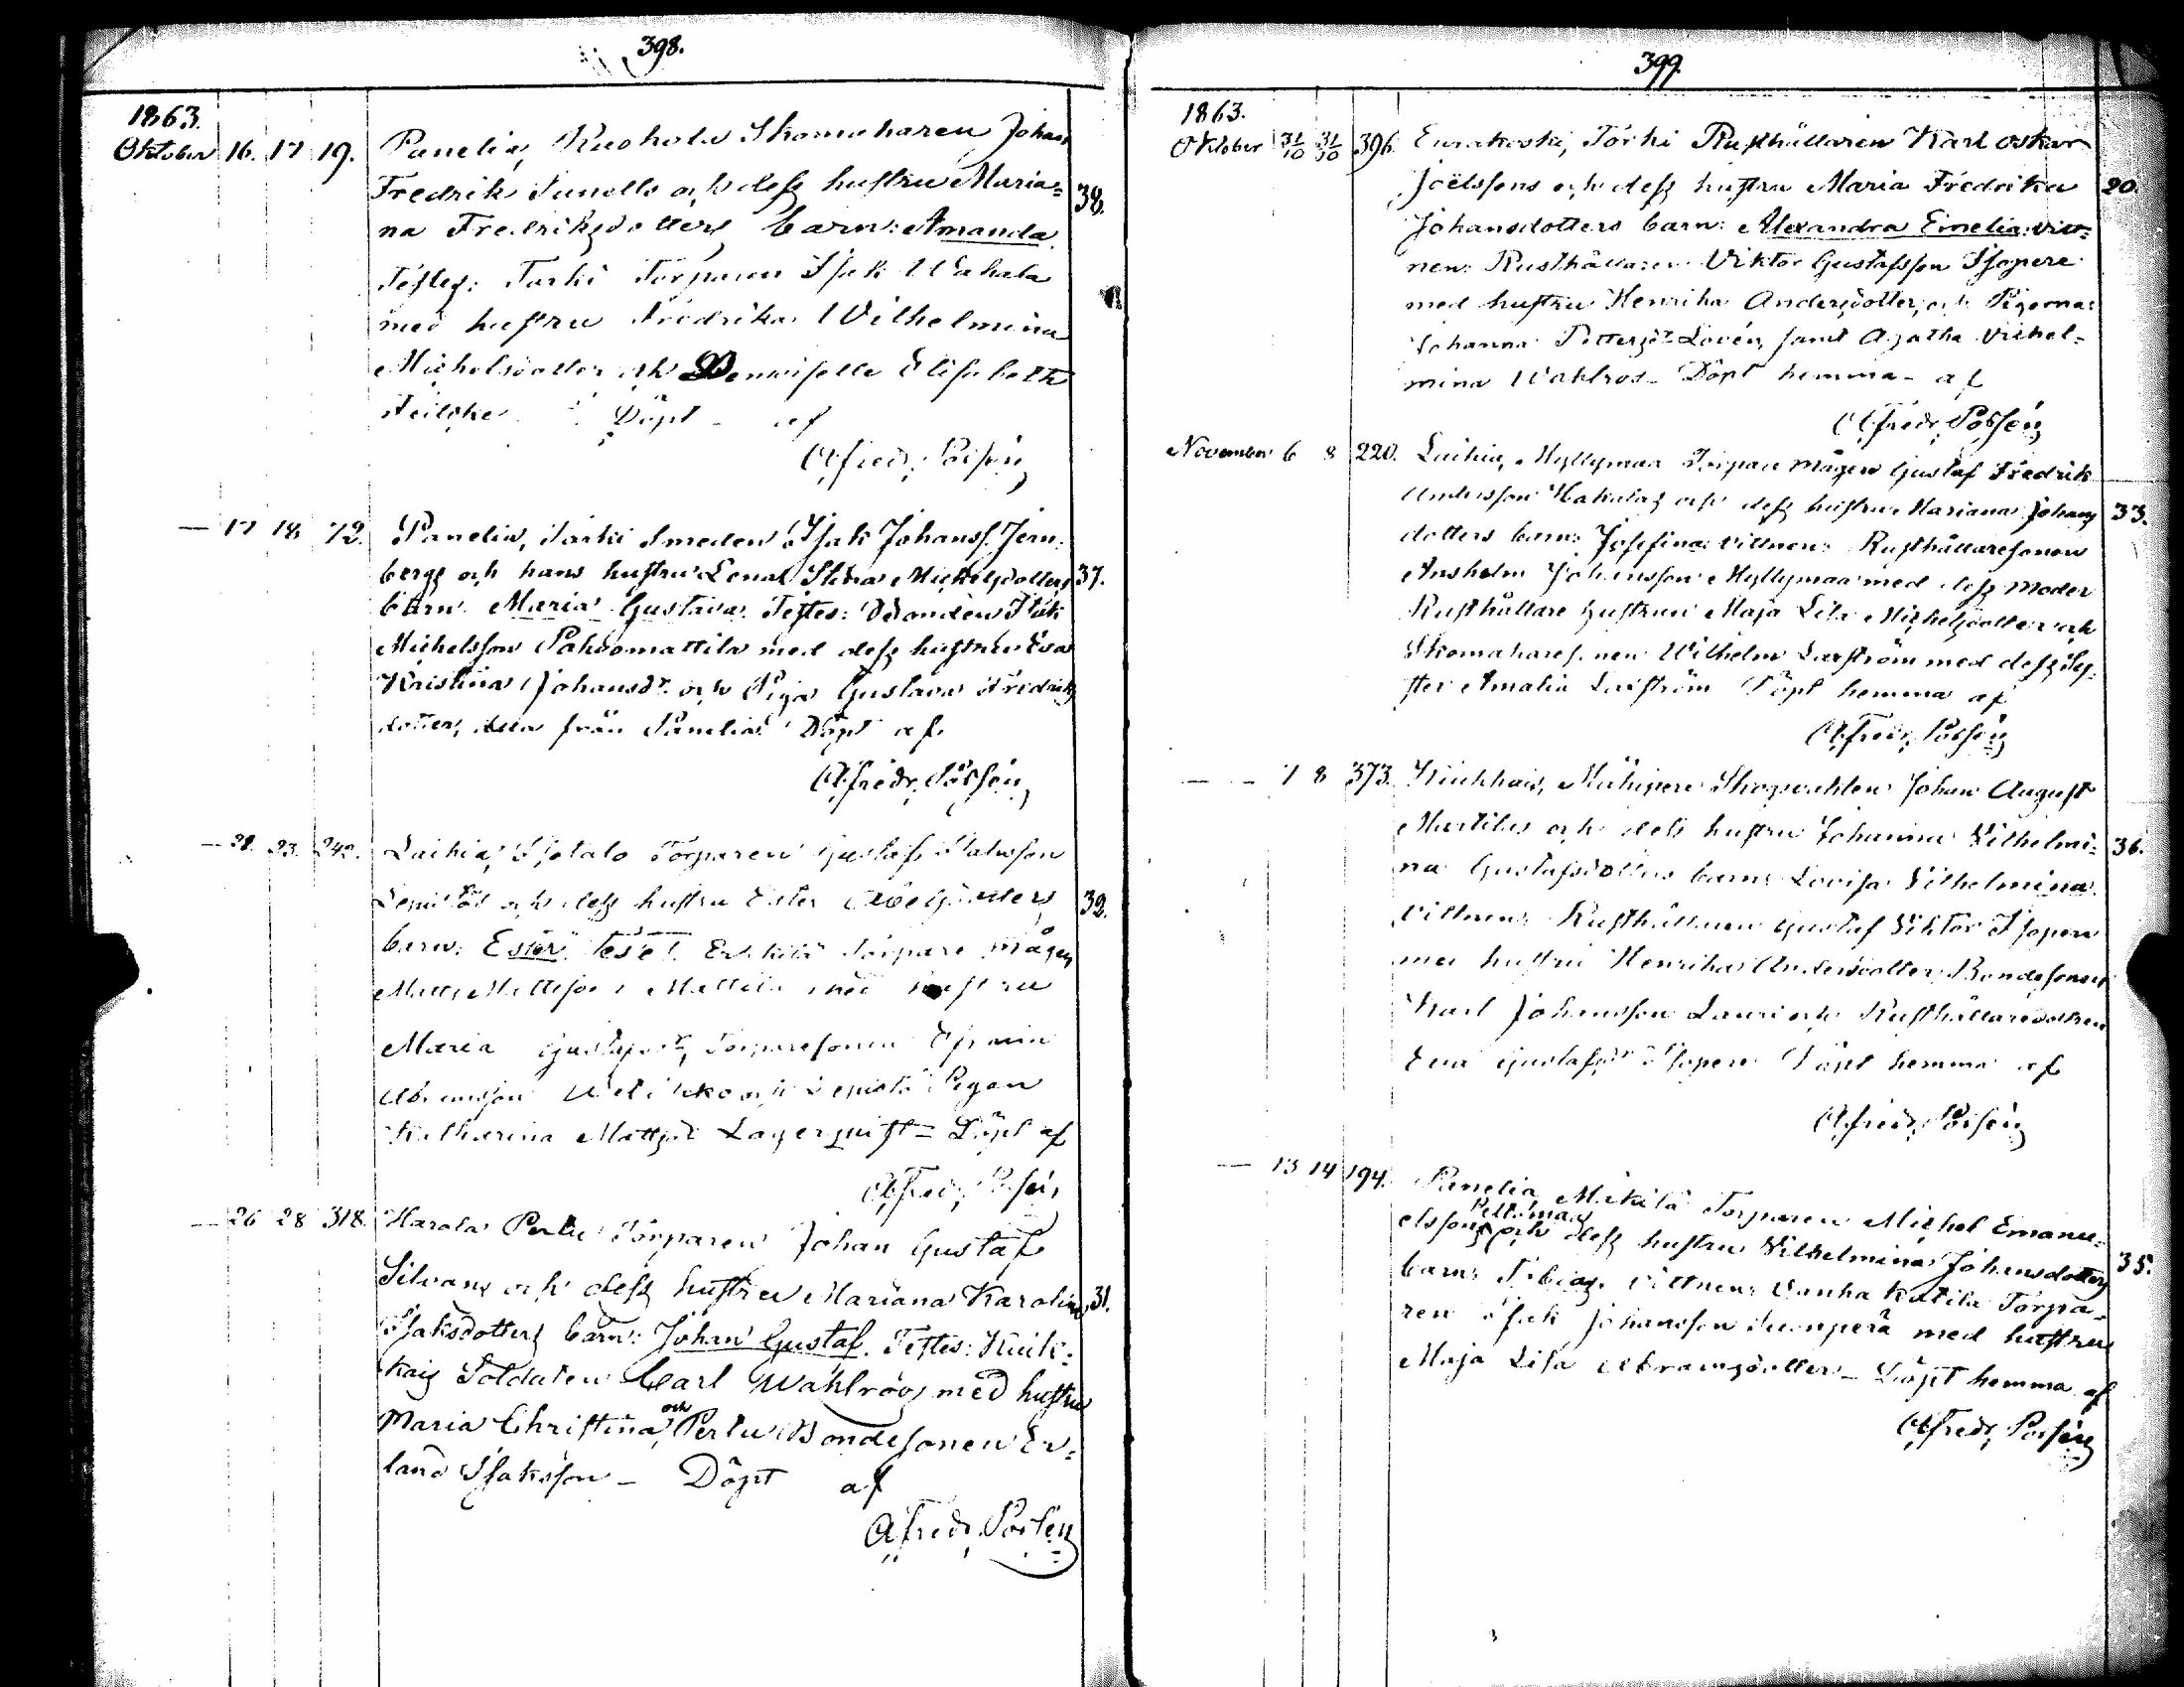 398.
1863.
Oktober 16. 17 19. Panelia, Ruohola Skomakaren Johan
Fredrik Sunells och dess hustru Maria=
na Fredriksdotters barn: Amanda. 38.
Testes: Tarki Torparen Isak Wahala
med hustru Fredrika Wilhelmina
Michelsdotter och Demoiselle Elisabeth
Döpt af
Alfredr. Posén
— 17 18 72. Panelia, Tarki Smeden Isak Johanss. Jern=
bergs och hans hustru Lena Stina Michelsdotters 37.
barn Maria Gustava. Testes: Bonden Isak
Michelsson Pahoomattila med dess hustru Eva
Kristina Johansdr. och Piga Gustava Fredriks
dotter, alla från Panelia. Döpt af.
Alfredr. Posén
— 22. 23. 242. Laihia, Isotalo Torparen Gustaf Isaksson
Lepistös och dess hustru Ester Abelsdotters 32.
barn: Ester. test. Eskilä Torpare mågen
Matts Mattsson Mattila med hustru
Maria Gustafsdr, Torparesonen Efraim
och Lepistö Pigan
Katharina Mattsdr Lagerquist – Döpt af
Alfredr. Posén
— 26 28 318. Harola Perttu Torparen Johan Gustaf
Silvans och dess hustru Mariana Karolina 31.
Isaksdotters barn: Johan Gustaf. Testes: Kiuk=
kais Soldaten Carl Wahlroos med hustru
Maria Christina och Perttu Bondesonen Er=
land Isaksson – Döpt af
Alfredr. Posén
399.
1863.
Oktober 31/10 31/10 396. Eurakoski, Törki Rusthållaren Karl Oskar
Joëlssons och dess hustru Maria Fredrika 20.
Johansdotters barn: Alexandra Emelia. vitt=
nen: Rusthållaren Viktor Gustafsson Isopere
med hustru Henrika Andersdotter, och Pigorna:
Johanna Pettersdr Lovén, samt Agatha Vilhel=
mina Wahlros – Döpt hemma – af
Alfredr. Posén
November 6 8 220. Laihia, Myllymaa Torpare mågen Gustaf Fredrik
Andersson Hakalas och dess hustru Mariana Johans 33.
dotters barn: Josefina. vittnen: Rusthållaresonen
Ansholm Johansson Myllymaa med dess Moder
Rusthållare hustrun Maja Lisa Michelsdotter och
Skomakares. nen Wilhelm Laxström med dess Sy=
ster Amalia Laxström Döpt hemma af
Alfredr. Posén
— — 7 8 373. Kiukkais, Skogvakten Johan August
Martilas och dess hustru Johanna Vilhelmi= 36.
na Gustafsdotters barn: Lovisa Vilhelmina.
Vittnen: Rusthållaren Gustaf Viktor Isopere
med hustru Henrika Andersdotter, Bondesonen
Karl Johansson Lauri och Rusthållaredottren
Eva Gustafsdr Isopere Döpt hemma af
Alfredr. Posén
— 13 14 194. Panelia Mikilä Torparen Michel Emanu=
elssons Peltomaas och dess hustru Vilhelmina Johansdotters 35.
barn: Tobias. vittnen: Vanha Kutila Torpa=
ren Isak Johansson Suonperä med hustru
Maja Lisa Abramsdotter – Döpt hemma af
Alfredr. Posén